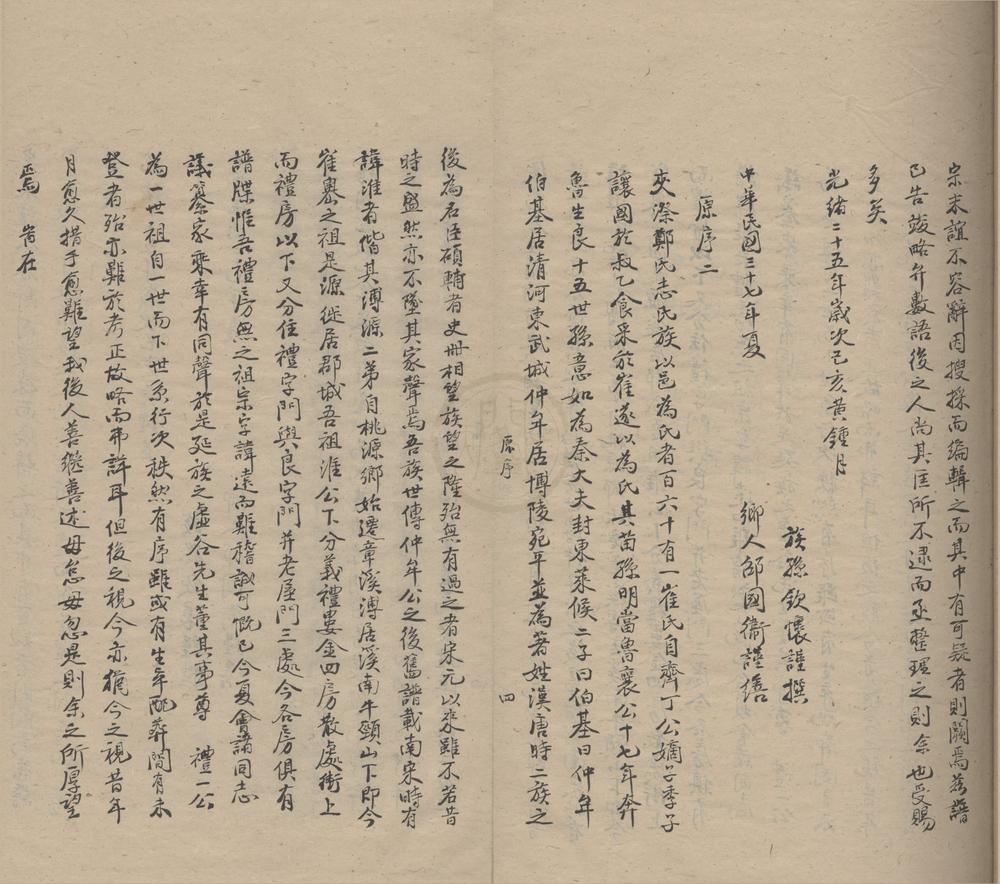 宗末誼不容辭因搜採而編輯之而其中有可疑者則闕焉茲譜
已告竣略弁數語後之人尚其匡所不逮而亟整理之則余也受賜
多矣
光緒二十五年歲次己亥黃鍾月
族孫欽懷謹撰
中華民國三十七年夏
鄉人邵國衞謹繕
原序二
夾漈鄭氏志氏族以邑為氏者百六十有一崔氏自齊丁公嫡子季子
讓國於叔乙食采於崔遂以為氏其苗孫明當魯襄公十七年奔
魯生良十五世孫意如為秦大夫封東萊候二子曰伯基曰仲牟
伯基居清河東武城仲牟居博陵宛平並為著姓漢唐時二族之
原序
四
後為名臣碩輔者史冊相望族望之隆殆無有過之者宋元以來雖不若昔
時之盛然亦不墜其家聲焉吾族世傳仲牟公之後舊譜載南宋時有
諱淮者偕其溥源二弟自桃源鄉始遷章溪溥居溪南牛頸山下即今
崔嶴之祖是源徙居郡城吾祖淮公下分義禮婁金四房散處街上
而禮房以下又分住禮字門與良字門并老屋門三處今各房俱有
譜牒惟吾禮房無之祖宗字諱遠而難稽誠可慨已今夏會諸同志
議纂家乘幸有同聲於是延族之虛谷先生董其事尊 禮一公
為一世祖自一世而下世系行次秩然有序雖或有生年配葬間有未
登者殆亦難於考正故略而弗詳耳但後之視今亦猶今之視昔年
月愈久措手愈難望我後人善繼善述毋怠毋忽是則余之所厚望
焉 旹在